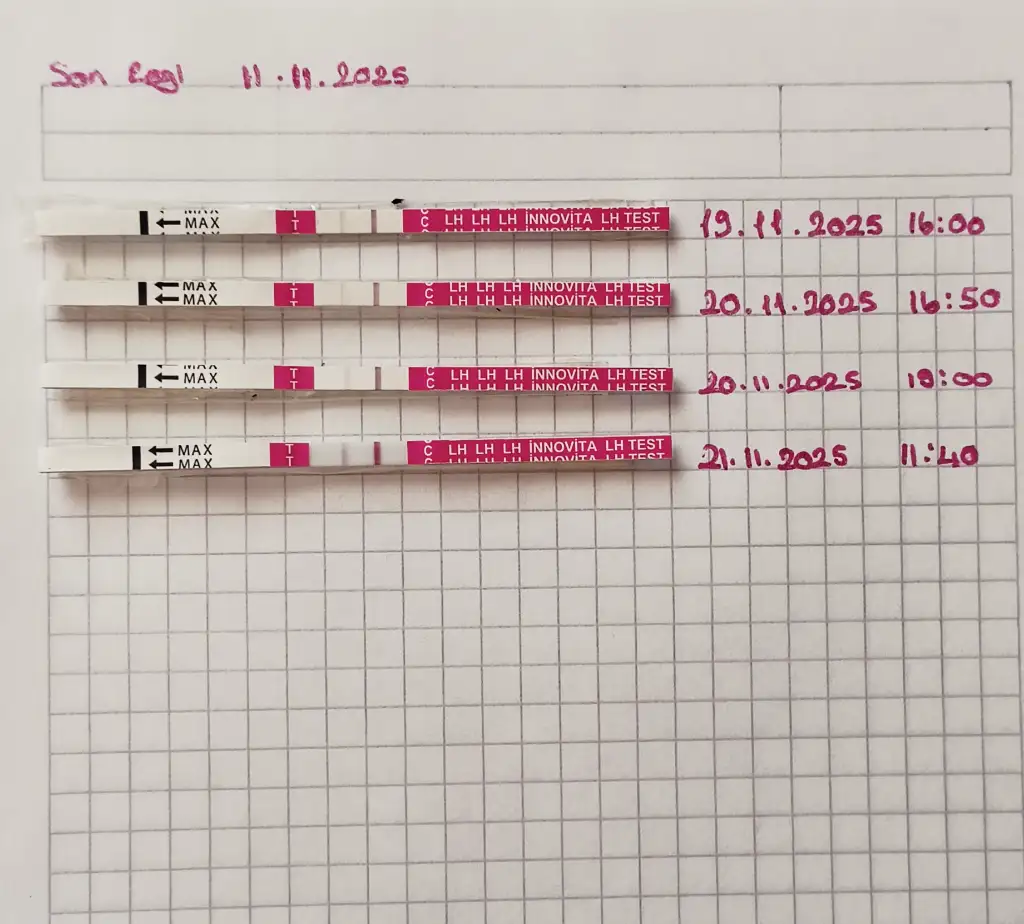 Son Regl 11.11.2025
MAX T LH LH LH İNNOVİTA LH TEST 19.11.2025 16:00
MAX T C LH LH LH İNNOVİTA LH TEST
MAX T C LH LH LH İNNOVİTA LH TEST 20.11.2025 16:50
MAX T C LH LH LH İNNOVİTA LH TEST 20.11.2025 18:00
T C LH LH LH İNNOVİTA LH TEST
MAX T C LH LH LH İNNOVİTA LH TEST 21.11.2025 11:40
MAX T C LH LH LH İNNOVİTA LH TEST